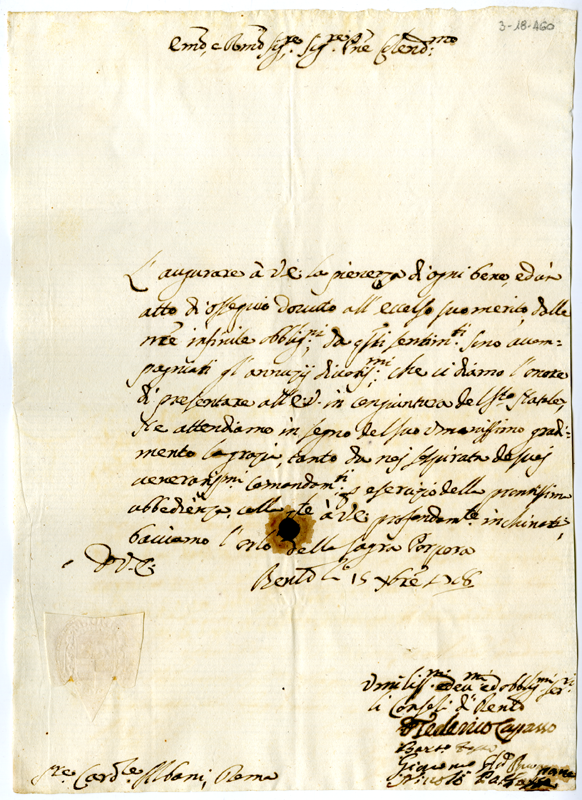 3-18-460
Em̃o, e Rm̃o Sig.re Sig.re Pñe Colend.mo
L'augurare à V.E. la pienezza di ogni bene, ed'un
atto di ossequio dovuto all'ecelso suo merito, dalle
nr̃e infinite obblig.ni; da q̃sti sentim.ti sino accom
pagniati gl'annuzij divotis.mi, che ci diamo l'onore
di presentare all'E.V. in congiuntura del S.to Natale,
Ne attendiamo in segno del suo Umanissimo gradi-
mento la grazia, tanto da noj sospirata de suoj
veneratis.mi Comandam.ti
esercizio della prontissima
obbedienza, colla q̃le à V.E. profondam.te inchinati,
baciamo l'orlo della Sagra Porpora
D. V. E.
15
Umiliss.mi dev.mi ed obblig.mi Ser.ri
li Consoli di
Federico Capasso
Giacomo
Nicolò
Sr.e Card.le Albani, Roma